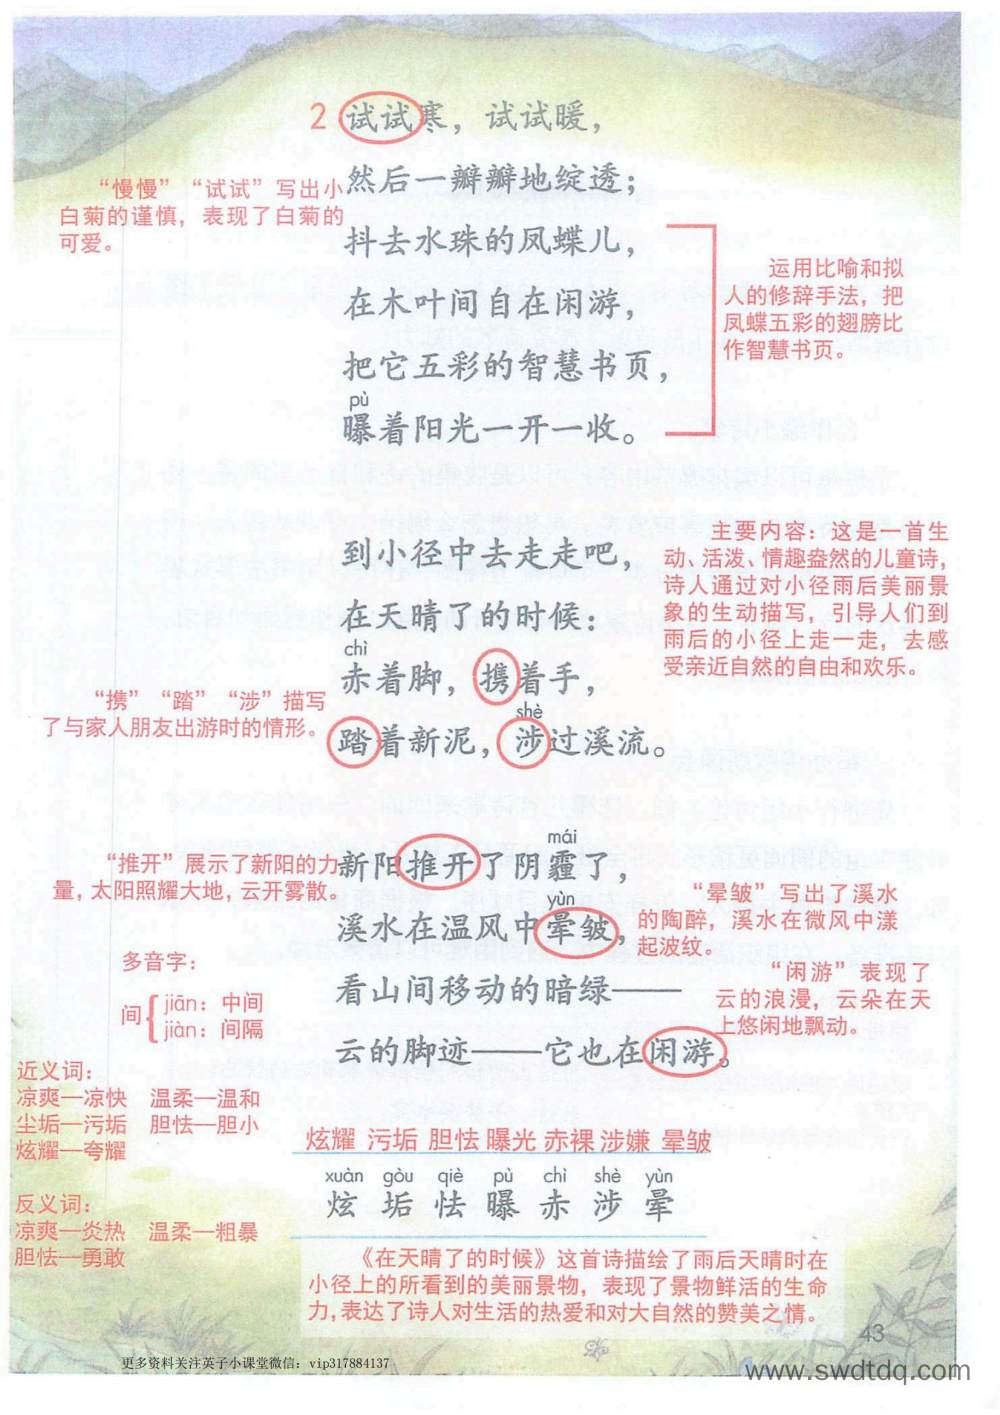 2 试试寒，试试暖，
然后一瓣瓣地绽透；
“慢慢”“试试”写出小
白菊的谨慎，表现了白菊的
可爱。
抖去水珠的凤蝶儿，
在木叶间自在闲游，
把它五彩的智慧书页，
pù
曝着阳光一开一收。
运用比喻和拟
人的修辞手法，把
凤蝶五彩的翅膀比
作智慧书页。
到小径中去走走吧，
在天晴了的时候：
chì
赤着脚，携着手，
shè
踏着新泥，涉过溪流。
主要内容：这是一首生
动、活泼、情趣盎然的儿童诗，
诗人通过对小径雨后美丽景
象的生动描写，引导人们到
雨后的小径上走一走，去感
受亲近自然的自由和欢乐。
“携”“踏”“涉”描写
了与家人朋友出游时的情形。
mái
新阳推开了阴霾了，
yùn
溪水在温风中晕皱，
看山间移动的暗绿——
云的脚迹——它也在闲游。
“推开”展示了新阳的力
量，太阳照耀大地，云开雾散。
“晕皱”写出了溪水
的陶醉，溪水在微风中漾
起波纹。
“闲游”表现了
云的浪漫，云朵在天
上悠闲地飘动。
多音字：
间 jiān：中间
jiàn：间隔
近义词：
凉爽—凉快 温柔—温和
尘垢—污垢 胆怯—胆小
炫耀—夸耀
反义词：
凉爽—炎热 温柔—粗暴
胆怯—勇敢
炫耀 污垢 胆怯 曝光 赤裸 涉嫌 晕皱
xuàn gòu qiè pù chì shè yùn
炫 垢 怯 曝 赤 涉 晕
《在天晴了的时候》这首诗描绘了雨后天晴时在
小径上的所看到的美丽景物，表现了景物鲜活的生命
力，表达了诗人对生活的热爱和对大自然的赞美之情。
43
更多资料关注英子小课堂微信：vip317884137
www.swdtdq.com